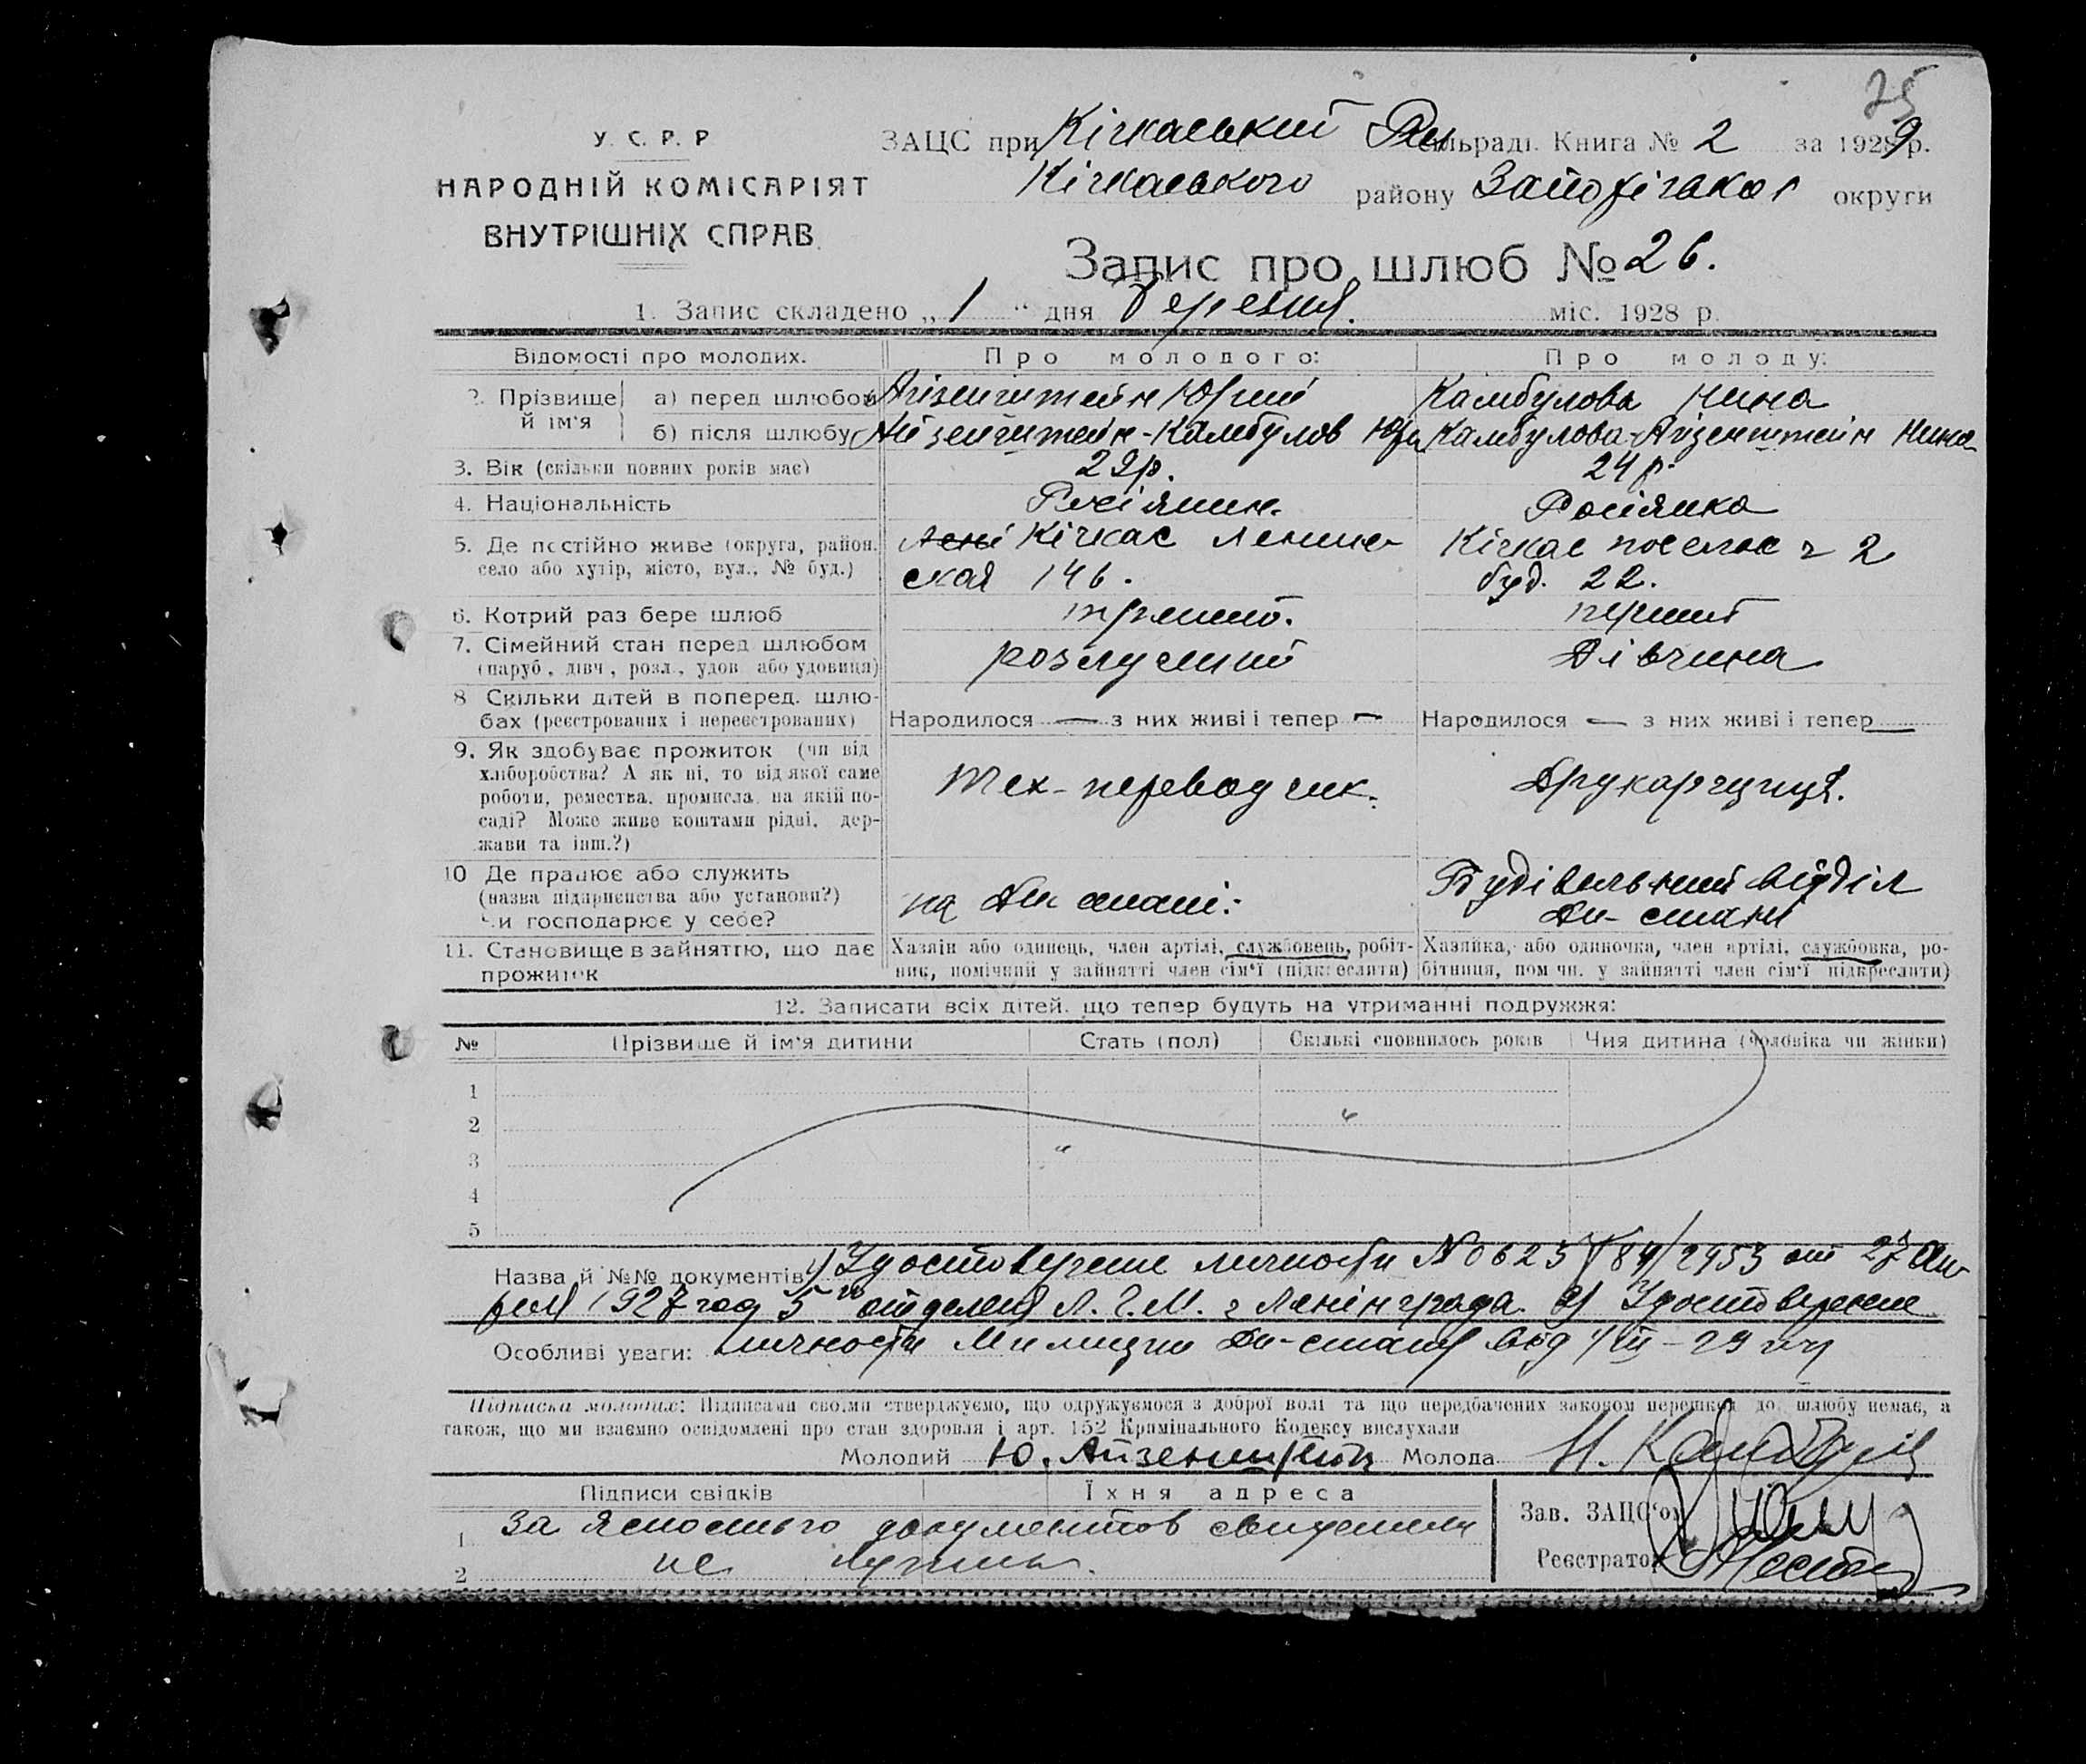 25
У. С. Р. Р
НАРОДНІЙ КОМІСАРІЯТ
ВНУТРІШНІХ СПРАВ
ЗАЦС при Кічкаський сільраді. Книга № 2 за 1929 р.
Кічкаського району округи
Запис про шлюб № 26.
1. Запис складено „ 1 “ дня березня. міс. 1928 р.
Відомості про молодих. Про молодого: Про молоду:
2. Прізвище й ім'я а) перед шлюбом Айзенштейн Юрий Камбулова Нина
б) після шлюбу Айзенштейн-Камбулов Юрий Камбулова-Айзенштейн Нина
3. Вік (скільки повних років має) 29р. 24 р.
4. Національність Росіянин. Росіянка
5. Де постійно живе (округа, район, Кічкас Ленин- Кічкас поселок 2
село або хутір, місто, вул., № буд.) ская 146. буд. 22.
6. Котрий раз бере шлюб перший
7. Сімейний стан перед шлюбом розлучений Дівчина
(паруб., дівч., розл., удов. або удовиця)
8. Скільки дітей в поперед. шлю-
бах (реєстрованих і нереєстрованих) Народилося — з них живі і тепер — Народилося — з них живі і тепер —
9. Як здобуває прожиток (чи від
хліборобства? А як ні, то від якої саме
роботи, ремества, промисла, на якій по- Тех-переводчик. Друкарщиця.
саді? Може живе коштами рідні, дер-
жави та інш.?)
10 Де працює або служить Будівельний відділ
(назва підприємства або установи?) на Дн-стані. Дн-стани
Чи господарює у себе?
11. Становище в зайняттю, що дає Хазяїн або одинець, член артілі, службовець, робіт- Хазяйка, або одиночка, член артілі, службовка, ро-
прожиток ник, помічний у зайнятті член сім'ї (підкреслити) бітниця, помічн. у зайнятті член сім'ї підкреслити)
12. Записати всіх дітей, що тепер будуть на утриманні подружжя:
№ Прізвище й ім'я дитини Стать (пол) Скількі сповнилось років Чия дитина (чоловіка чи жінки)
1
2
3
4
5
Назва й №№ документів: 1) Удостоверение личности от 27 ап-
реля 1927 год 5го отделения Л. Г. М. г Ленінграда. 2) Удостоверение
Особливі уваги: личности Милиции Дн-стану від 1/III-29
Підписка молодих: Підписами своїми стверджуємо, що одружуємося з доброї волі та що передбачених законом перешкод до шлюбу немає, а
також, що ми взаємно освідомлені про стан здоровля і арт. 152 Кримінального Кодексу вислухали
Молодий Ю. Айзенштейн Молода Н. Камбулова
Підписи свідків Їхня адреса
1 За документов
2 не
Зав. ЗАЦС'ом
Реєстратор